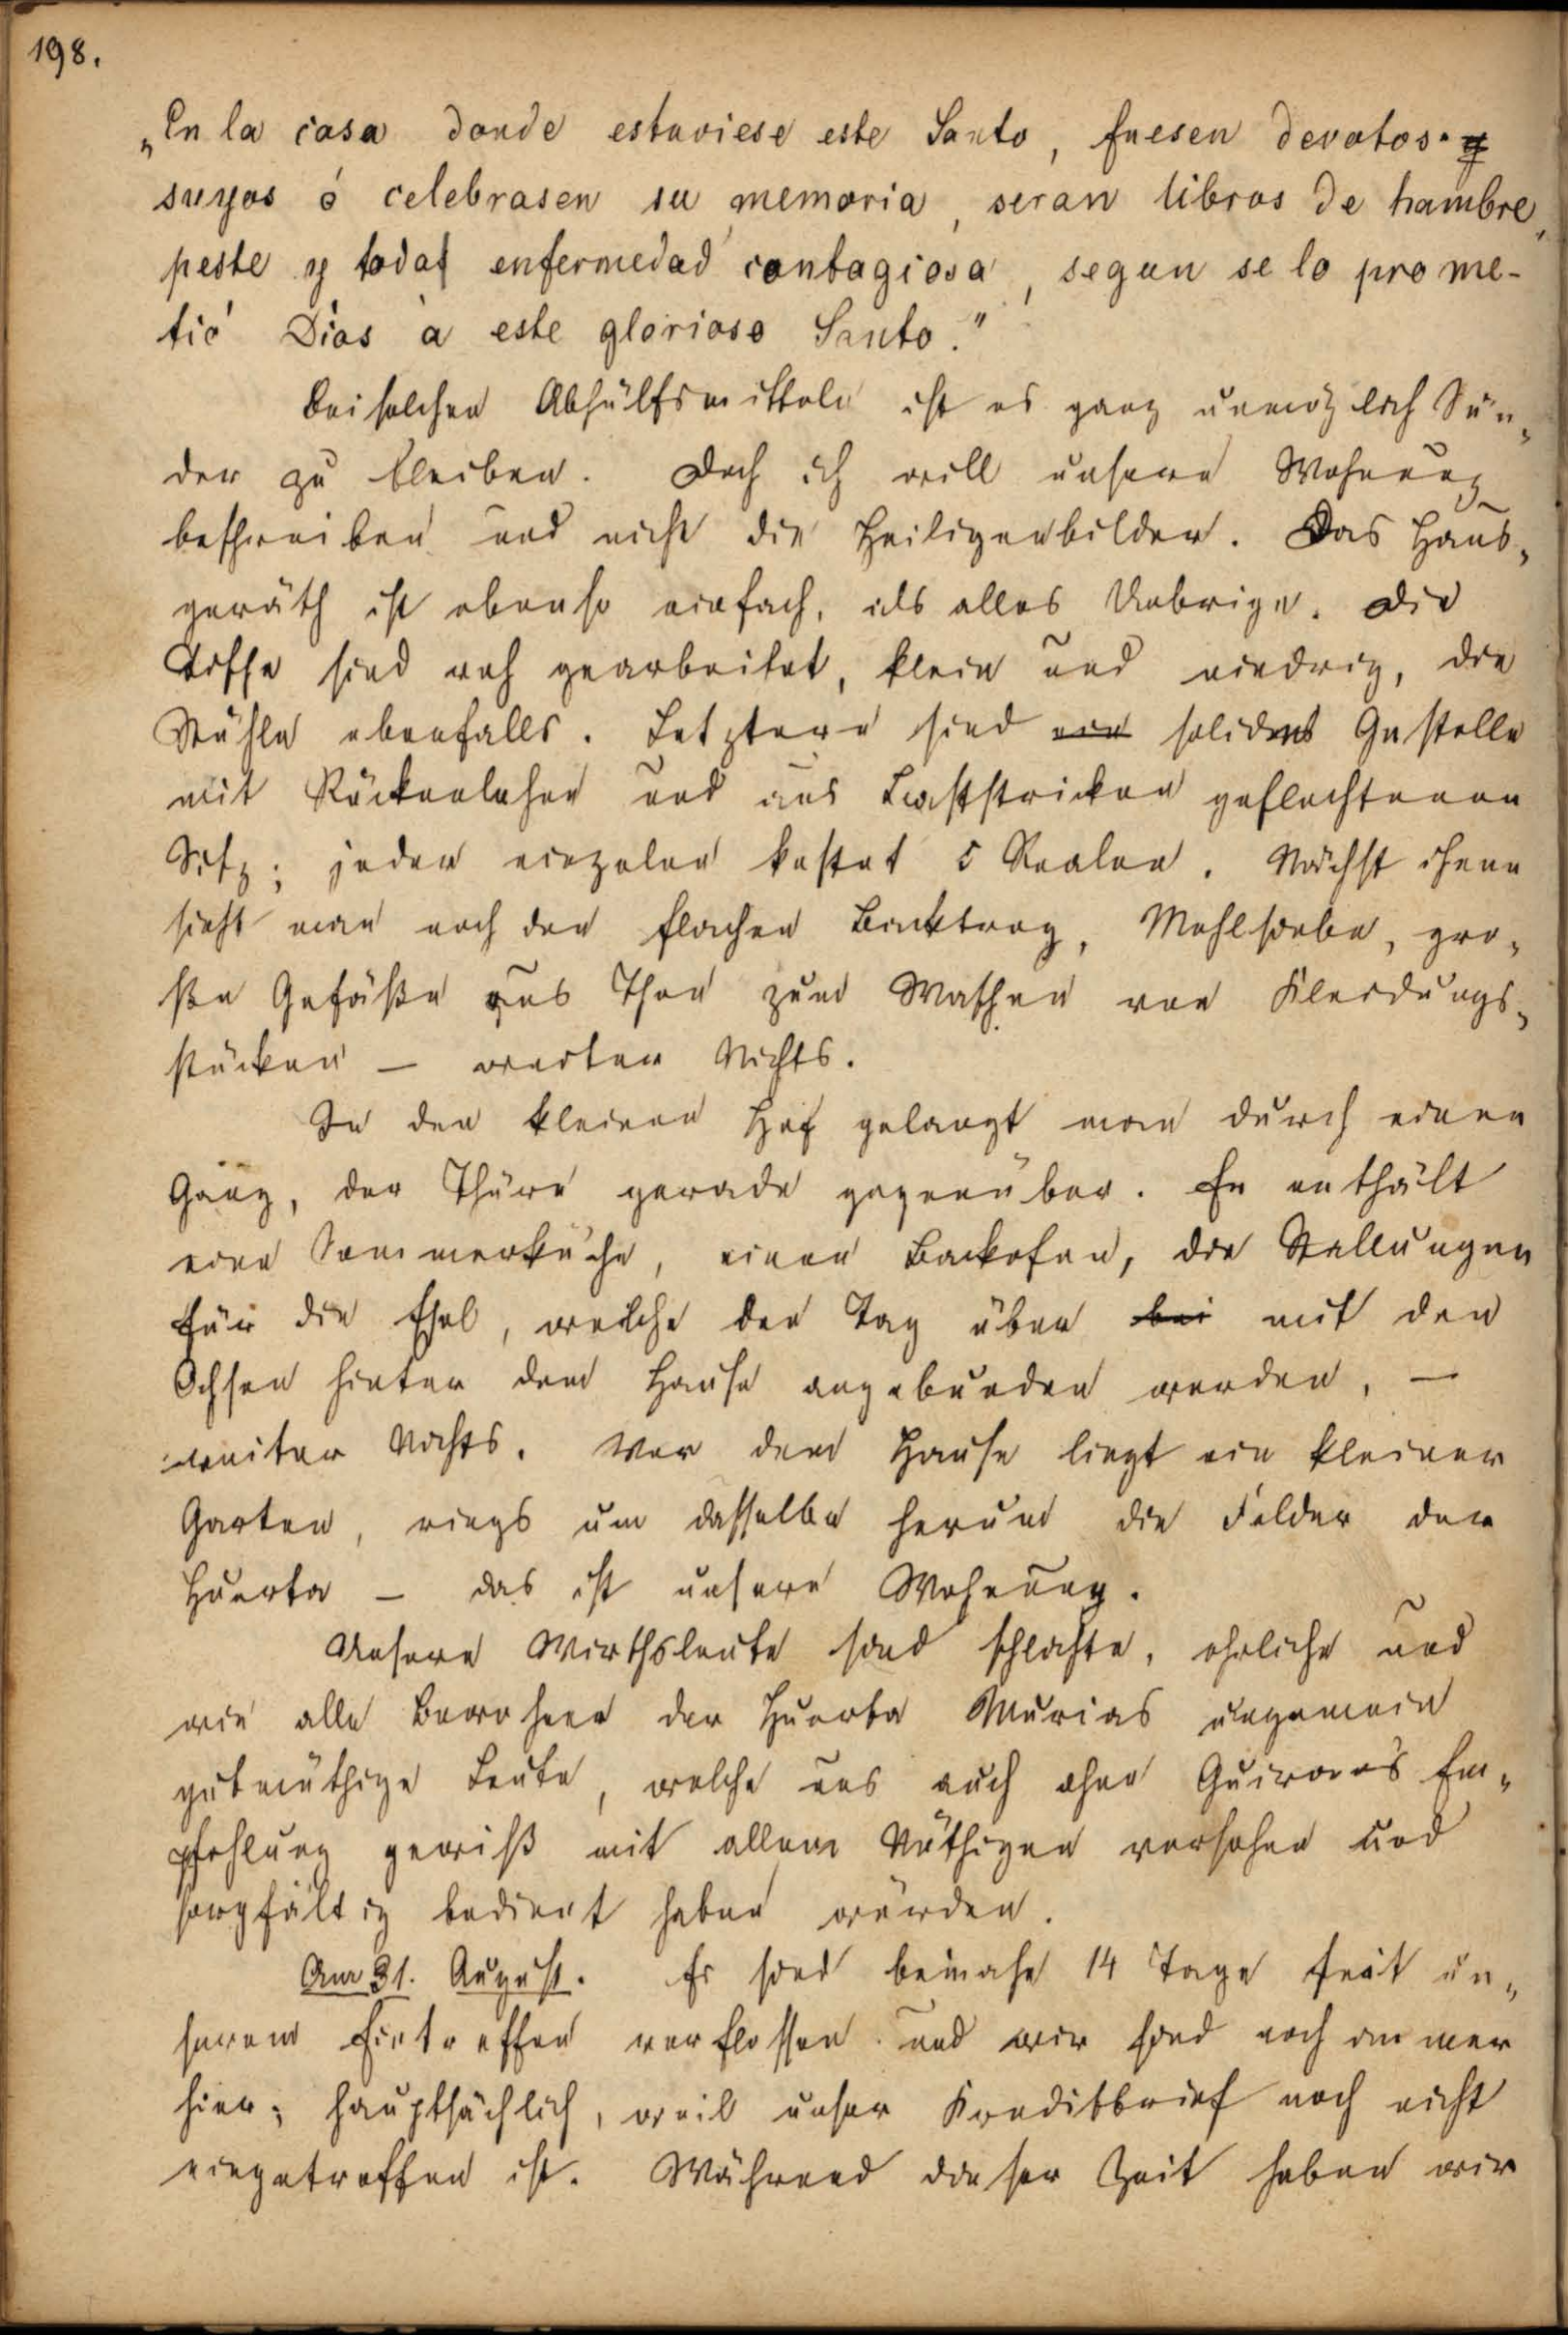 198.
„En la casa donde estaviese este Santo, fuesen devotos. y
suyos ó celebrasen su memoria, seran libros de hambre,
peste y todas enfermedad contagiosa, segun se lo prome-
tió Dios a este glorioso Santo."
Bei solchen Abhülfsmitteln ist es ganz unmöglich Sün„
der zu bleiben. Doch ich will unsere Wohnung
beschreiben und nicht die Heiligenbilder. Das Haus„
geräth ist ebenso einfach, als alles Uebrige. Die
Tische sind roh gearbeitet, klein und niedrig, die
Stühle ebenfalls. Letztere sind ein solides Gestelle
mit Rückenlehne und aus Baststricken geflochtenen
Sitz; jeder einzelne kostet 5 Realen. Nächst ihnen
sieht man noch den flachen Backtrog, Mehlsiebe, gro„
ße Gefäße aus Thon zum Waschen von Kleidungs„
stücken – weiter Nichts.
In den kleinen Hof gelangt man durch einen
Gang, der Thüre gerade gegenüber. Er enthält
eine Sommerküche, einen Backofen, die Stallungen
für die Esel, welche den Tag über bei mit den
Ochsen hinter dem Hause angebunden werden, –
weiter Nichts. Vor dem Hause liegt ein kleiner
Garten, rings um dasselbe herum die Felder der
Huerta – das ist unsere Wohnung.
Unsere Wirthsleute sind schlichte, ehrliche und
wie alle Bewohner der Huerta Murias ungemein
gutmüthige Leute, welche uns auch ohne Guiraos's Em„
pfehlung gewiß mit allem Nöthigen versehen und
sorgfältig bedient haben würden.
Am 31. August. Es sind beinahe 14 Tage seit un„
serem Eintreffen verflossen und wir sind noch immer
hier; hauptsächlich, weil unser Kreditbrief noch nicht
eingetroffen ist. Während dieser Zeit haben wir